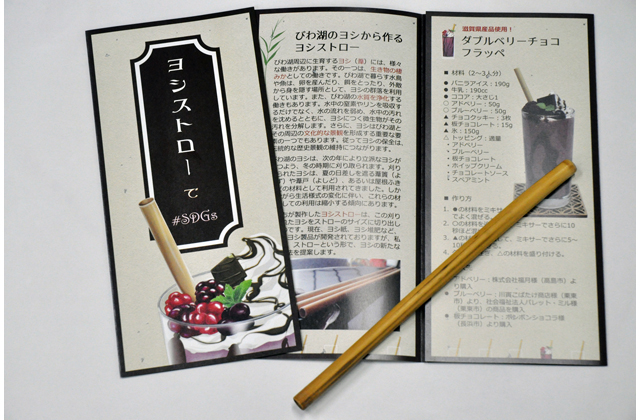 ヨシストローで
#SDGs
びわ湖のヨシから作る
ヨシストロー
びわ湖周辺に生育するヨシ（葦）には、様々
な働きがあります。その一つは、生き物の棲
みかとしての働きです。びわ湖で暮らす水鳥
や魚は、卵を産んだり、餌をとったり、外敵
から身を隠す場所として、ヨシの群落を利用
しています。また、びわ湖の水質を浄化する
働きもあります。水中の窒素やリンを吸収す
るだけでなく、水の流れを弱め、水中の汚れ
を沈めるとともに、ヨシにつく微生物がその
汚れを分解します。さらに、ヨシはびわ湖と
その周辺の文化的な景観を形成する重要な要
素の一つでもあります。従ってヨシの保全は
伝統的な歴史景観の維持につながります。
びわ湖のヨシは、次の年により立派なヨシが
つよう、冬の時期に刈り取られます。刈り
られたヨシは、夏の日差しを遮る簾（
ず）や葭戸（よしど）、あるいは屋根ふき
の材料として利用されてきました。しか
がら生活様式の変化に伴い、これらの材
しての利用は縮小する傾向にあります。
が製作したヨシストローは、この刈り
たヨシをストローのサイズに切り出し
です。現在、ヨシ紙、ヨシ腐葉土など
ヨシ製品が開発されておりますが、私
ストローという形で、ヨシの新たな
法を提案します。
滋賀県産品使用！
ダブルベリーチョコ
フラッペ
■ 材料（2～3人分）
● バニラアイス：190g
● 牛乳：190cc
● ココア：大さじ1
○ アドベリー：50g
○ ブルーベリー：50g
▲ チョコクッキー：3枚
▲ 板チョコレート：15g
▲ 氷：150g
△ トッピング：適量
・アドベリー
・ブルーベリー
・板チョコレート
・ホイップクリーム
・チョコレートソース
・スペアミント
■ 作り方
1. ●の材料をミキサー
でよく混ぜ
ミキサーでさらに10
秒ほど
3. ▲の材料を
てミキサーでさらに5～
10
△の材料を盛り付ける。
アドベリー：株式会社福月様（高島市）よ
り購入
ブルーベリー
市）より、社会福祉法人パレット・ミル様
（栗東市）の商品を購入
板チョコレート
（長浜市）より購入